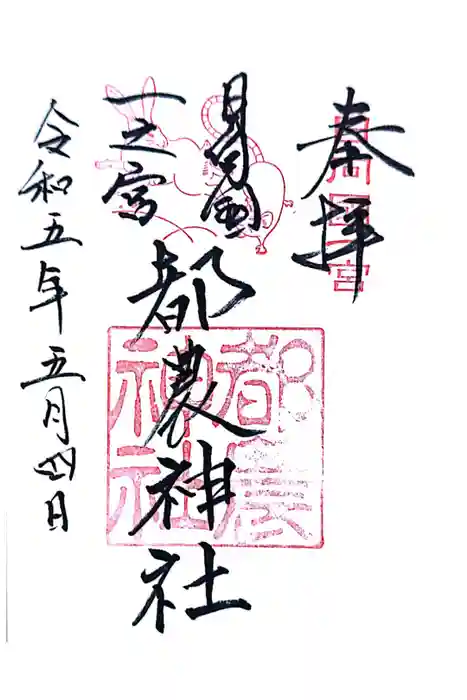 奉拝
日向国
一之宮
都農神社
令和五年五月四日
都農
神社